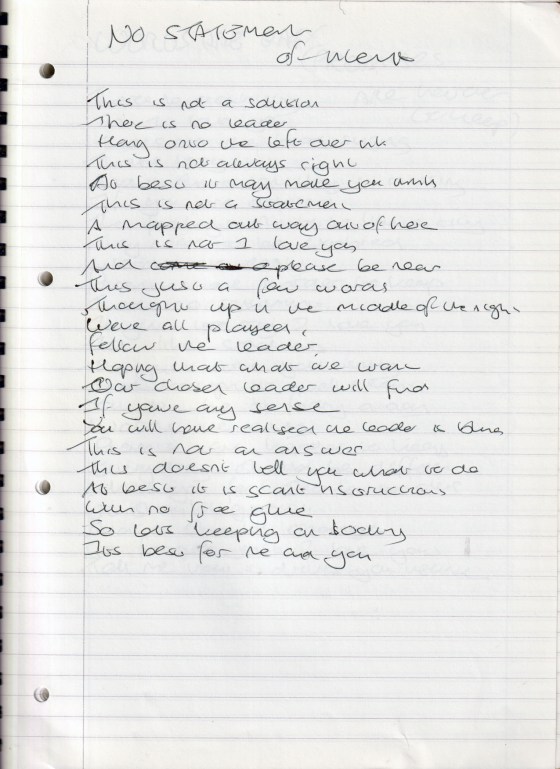 No STATEMENT
of intent
This is not a solution
There is no leader
Hang onto the left over ink
This is not always right
At best it may make you think
This is not a statement
A mapped out way out of here
This is not I love you
And please be near
This just a few words
Thought up in the middle of the night
We've all played,
Follow the leader,
Hoping that what we want
Our chosen leader will find
If youve any sense
You will have realised the leader is blind
This is not an answer
This doesn't tell you what to do
At best it is scant instructions
With no free glue
So lets keeping on
Its best for me and you